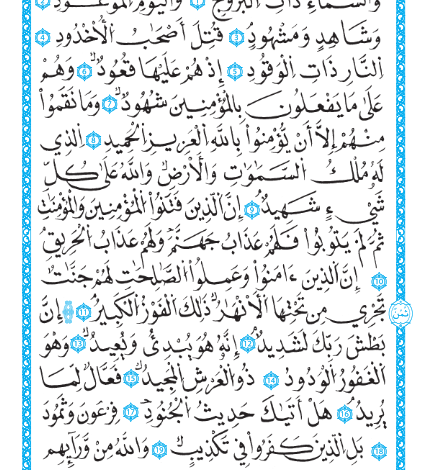 وَالسَّمَآءِ ذَاتِ الْبُرُوجِ ١ وَالْيَوْمِ الْمَوْعُودِ ٢
وَشَاهِدٍ وَمَشْهُودٍ ٣ قُتِلَ أَصْحَٰبُ الْأُخْدُودِ ٤
النَّارِ ذَاتِ الْوَقُودِ ٥ إِذْ هُمْ عَلَيْهَا قُعُودٌ ٦ وَهُمْ
عَلَىٰ مَا يَفْعَلُونَ بِالْمُؤْمِنِينَ شُهُودٌ ٧ وَمَا نَقَمُوا۟
مِنْهُمْ إِلَّآ أَن يُؤْمِنُوا۟ بِاللَّهِ الْعَزِيزِ الْحَمِيدِ ٨ الَّذِي
لَهُۥ مُلْكُ السَّمَٰوَٰتِ وَالْأَرْضِ ۚ وَاللَّهُ عَلَىٰ كُلِّ
شَيْءٍ شَهِيدٌ ٩ إِنَّ الَّذِينَ فَتَنُوا۟ الْمُؤْمِنِينَ وَالْمُؤْمِنَٰتِ
ثُمَّ لَمْ يَتُوبُوا۟ فَلَهُمْ عَذَابُ جَهَنَّمَ وَلَهُمْ عَذَابُ الْحَرِيقِ
١٠ إِنَّ الَّذِينَ ءَامَنُوا۟ وَعَمِلُوا۟ الصَّٰلِحَٰتِ لَهُمْ جَنَّٰتٌ
تَجْرِي مِن تَحْتِهَا الْأَنْهَٰرُ ۚ ذَٰلِكَ الْفَوْزُ الْكَبِيرُ ١١ إِنَّ
بَطْشَ رَبِّكَ لَشَدِيدٌ ١٢ إِنَّهُۥ هُوَ يُبْدِئُ وَيُعِيدُ ١٣ وَهُوَ
الْغَفُورُ الْوَدُودُ ١٤ ذُو الْعَرْشِ الْمَجِيدُ ١٥ فَعَّالٌ لِّمَا
يُرِيدُ ١٦ هَلْ أَتَىٰكَ حَدِيثُ الْجُنُودِ ١٧ فِرْعَوْنَ وَثَمُودَ
١٨ بَلِ الَّذِينَ كَفَرُوا۟ فِي تَكْذِيبٍ ١٩ وَاللَّهُ مِن وَرَآئِهِم